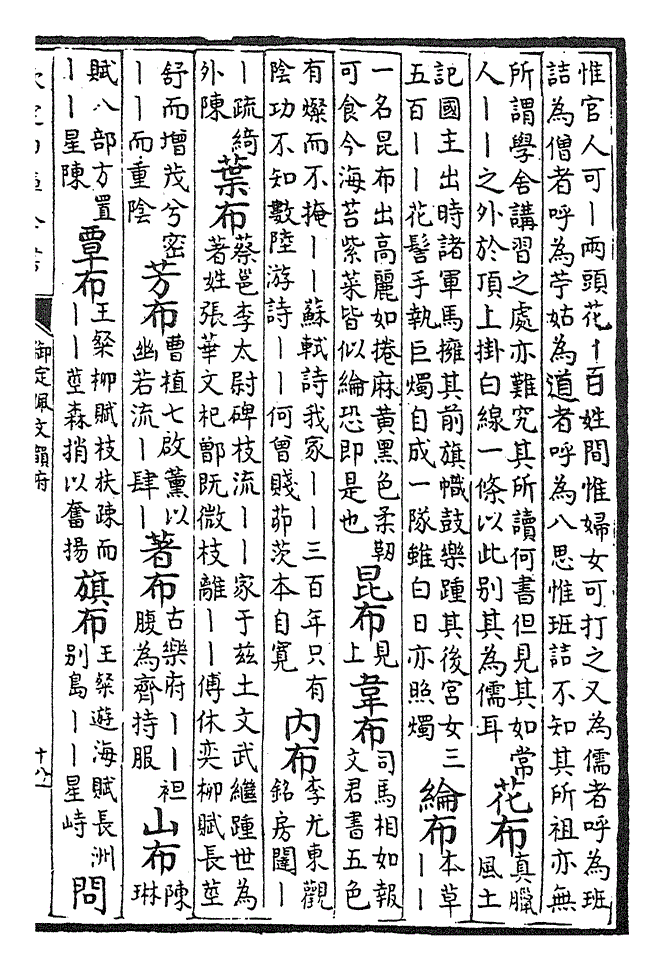 惟官人可丨兩頭花丨百姓間惟婦女可打之又為儒者呼為班
詰為僧者呼為苧姑為道者呼為八思惟班詰不知其所祖亦無
所謂學舍講習之處亦難究其所讀何書但見其如常
人丨丨之外於頂上掛白線一條以此別其為儒耳
花布
真臘
風土
記國主出時諸軍馬擁其前旗幟鼓樂踵其後宮女三
五百丨丨花髻手執巨燭自成一隊雖白日亦照燭
綸布
本草
丨丨
一名昆布出高麗如捲麻黃黑色柔韌
可食今海苔紫菜皆似綸恐即是也
昆布
見
上
韋布
司馬相如報
文君書五色
有燦而不掩丨丨蘇軾詩我家丨丨三百年只有
陰功不知數陸游詩丨丨何曾賤茆茨本自寛
内布
李尤東觀
銘房闥丨
丨疏綺
外陳
葉布
蔡邕李太尉碑枝流丨丨家于茲土文武繼踵世為
著姓張華文杞鄫既微枝離丨丨傅休奕柳賦長莖
舒而增茂兮密
丨丨而重陰
芳布
曹植七啟薰以
幽若流丨肆丨
著布
古樂府丨丨袒
腹為齊持服
山布
陳
琳
賦八部方置
丨丨星陳
覃布
王粲柳賦枝扶疎而
丨丨莖森捎以奮揚
旗布
王粲遊海賦長洲
別島丨丨星峙
問
御定佩文韻府